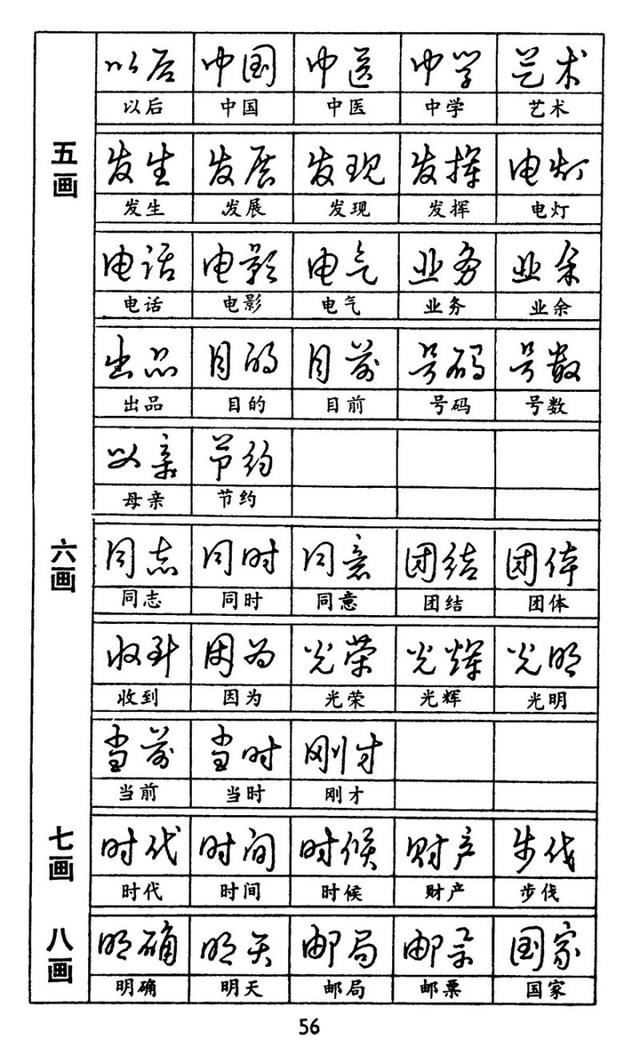 以后 中国 中医 中学 艺术
以后 中国 中医 中学 艺术
五画
发生 发展 发现 发挥 电灯
发生 发展 发现 发挥 电灯
电话 电影 电气 业务 业余
电话 电影 电气 业务 业余
出品 目的 目前 号码 号数
出品 目的 目前 号码 号数
母亲 节约
母亲 节约
六画
同志 同时 同意 团结 团体
同志 同时 同意 团结 团体
收到 因为 光荣 光辉 光明
收到 因为 光荣 光辉 光明
当前 当时 刚才
当前 当时 刚才
七画
时代 时间 时候 财产 步伐
时代 时间 时候 财产 步伐
八画
明确 明天 邮局 邮票 国家
明确 明天 邮局 邮票 国家
56